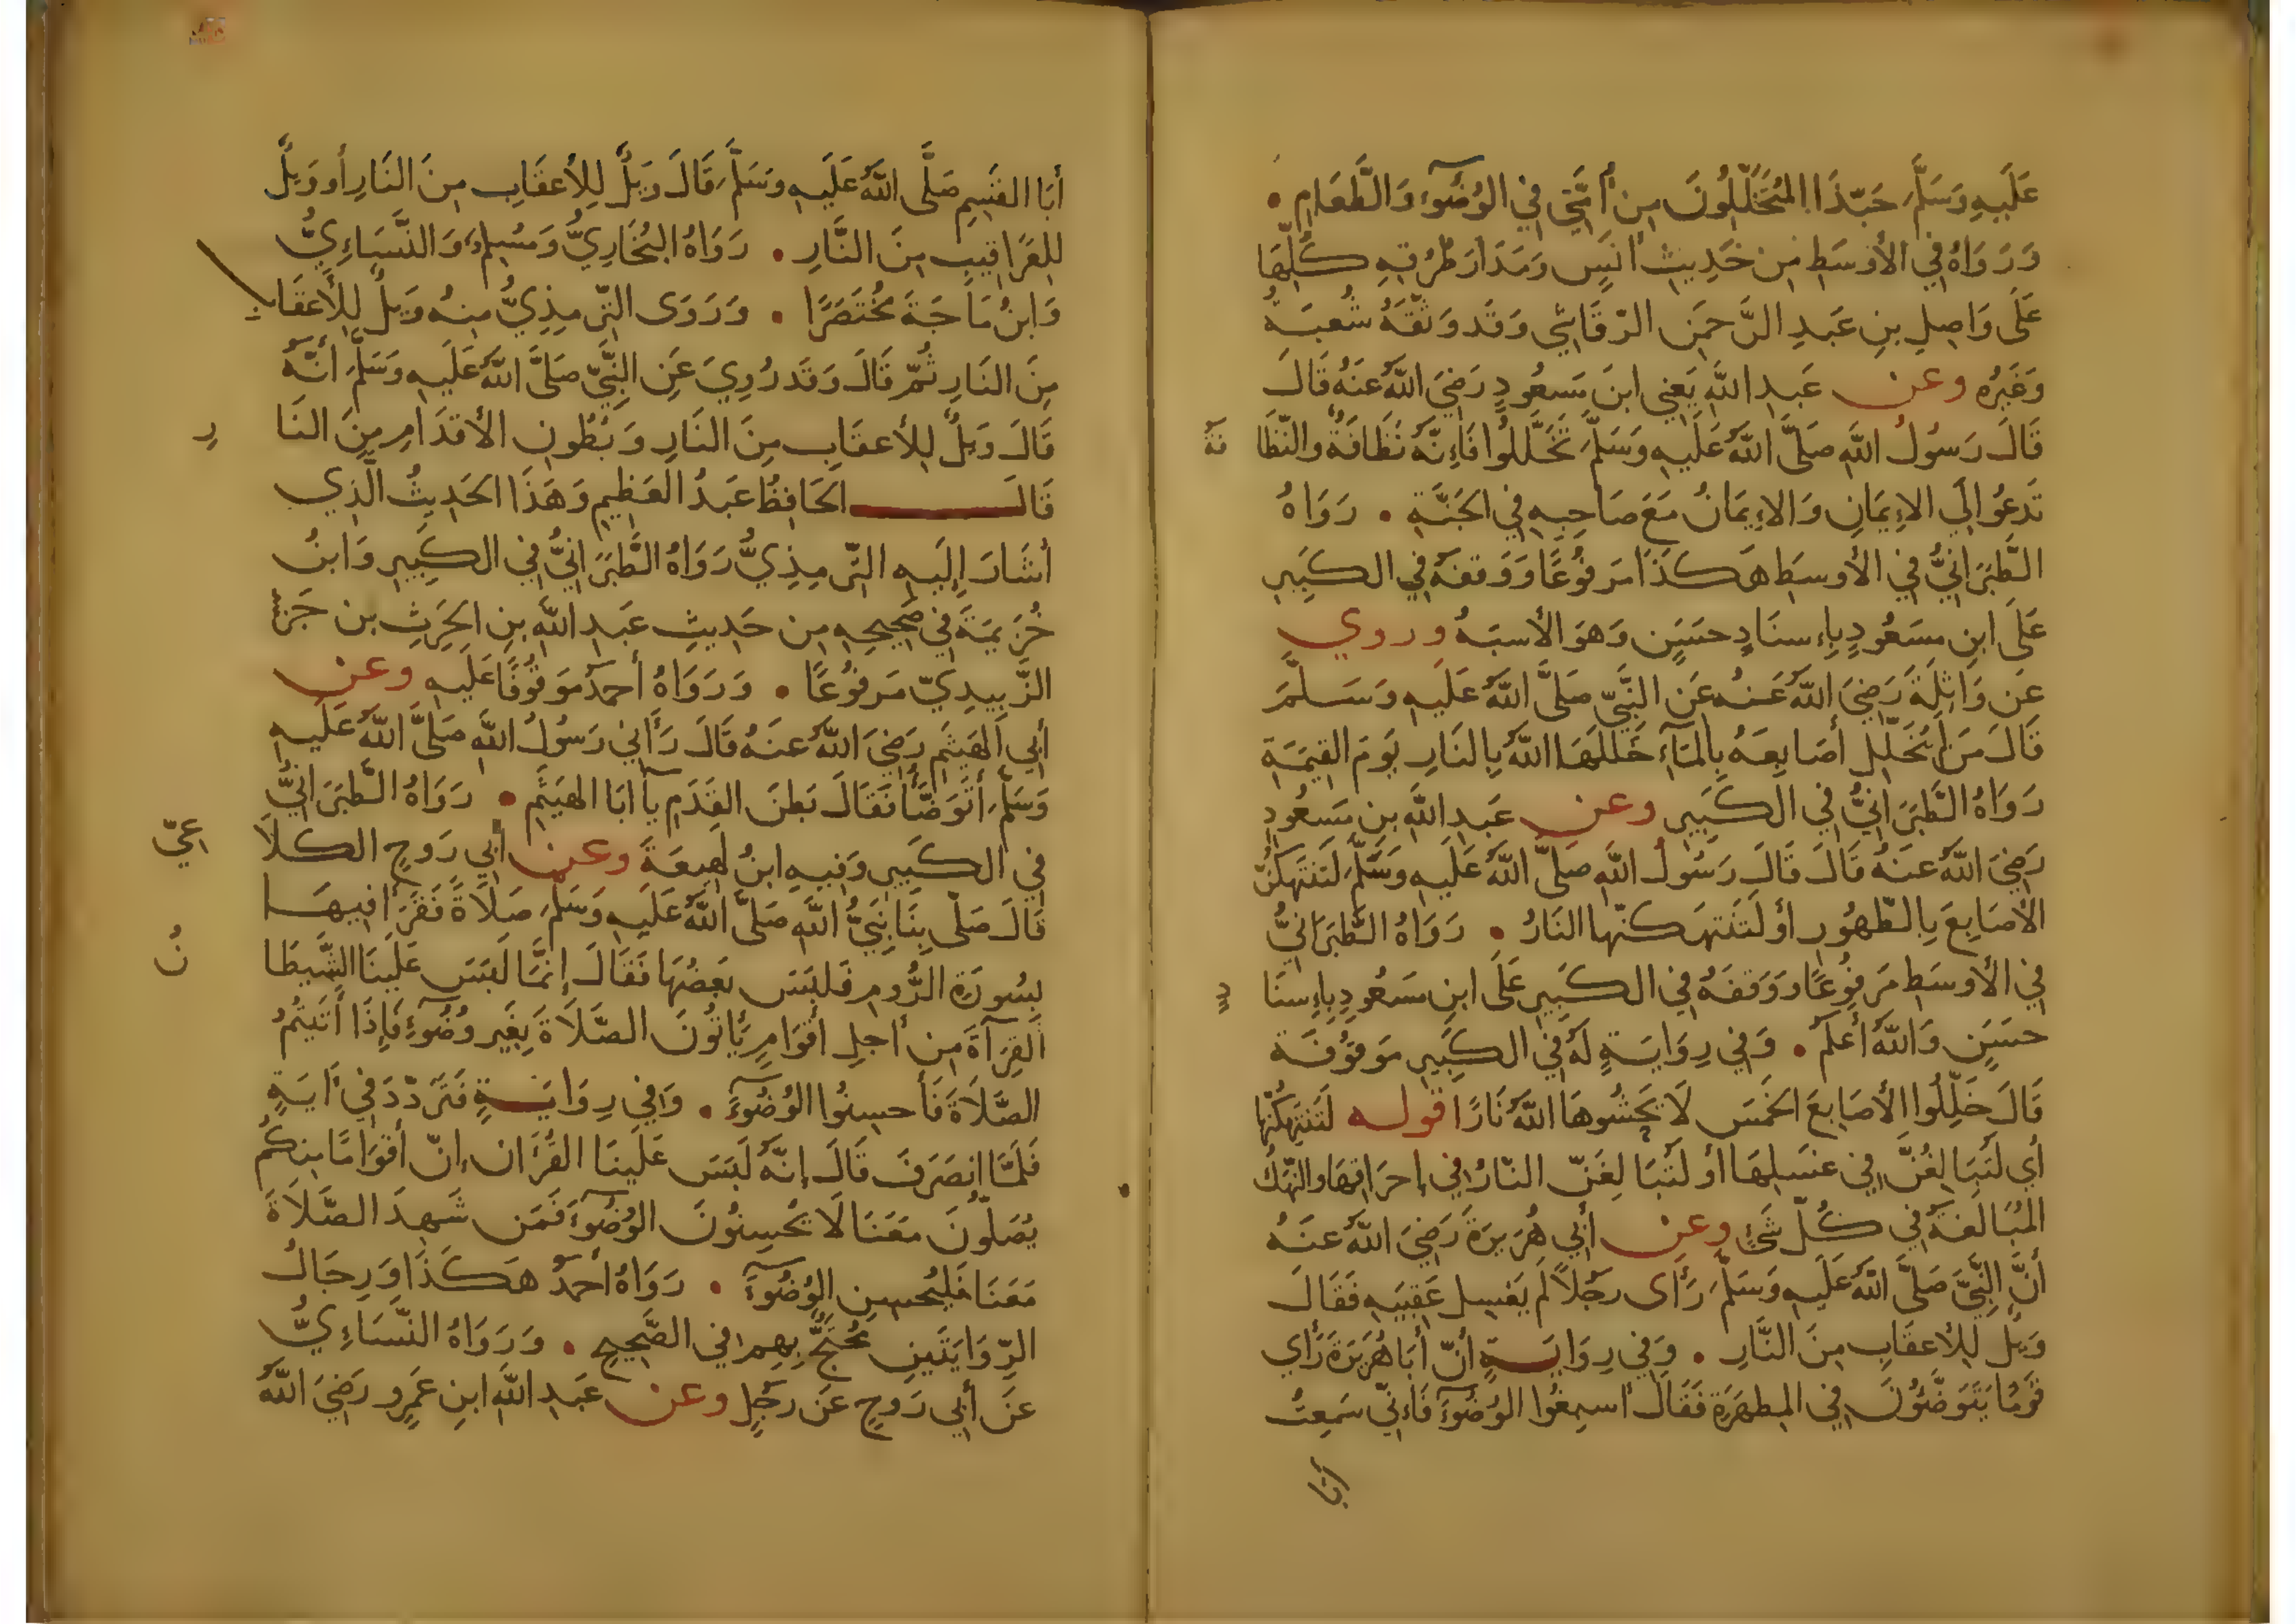 عَلَيهِ وَسَلَّمَ حَبَّذَا المُتَخَلِّلُونَ مِن أُمَّتِي فِي الوُضُوءِ وَالطَّعَامِ .
وَرَوَاهُ فِي الأَوسَطِ مِن حَدِيثِ أَنَسٍ وَمَدَارُ طُرُقِهِ كُلِّهَا
عَلَى وَاصِلِ بنِ عَبدِ الرَّحمَنِ الرَّقَاشِي وَقَد وَثَّقَهُ شُعبَةُ
وَغَيرُه وعن عَبدِ اللَّهِ يَعنِي ابنَ مَسعُودٍ رَضِيَ اللَّهُ عَنهُ قَالَ
قَالَ رَسُولُ اللَّهِ صَلَّى اللَّهُ عَلَيهِ وَسَلَّمَ تَخَلَّلُوا فَإِنَّهُ نَظَافَةٌ والنَّظَا فَةُ
تَدعُو إِلَى الإِيمَانِ وَالإِيمَانُ مَعَ صَاحِبِهِ فِي الجَنَّةِ . رَوَاهُ
الطَّبَرَانِيُّ فِي الأَوسَطِ هَكَذَا مَرفُوعًا وَوَقَفَهُ فِي الكَبِيرِ
عَلَى ابنِ مسَعُودٍ بِإِسنَادٍ حسَنٍ وَهوَ الأَشبَهُ وروي
عَن وَاثِلَةَ رَضِيَ اللَّهُ عَنهُ عَنِ النَّبِيِّ صَلَّى اللَّهُ عَلَيهِ وَسَلَّمَ
قَالَ مَن لَم يُخَلِّل أَصَابِعَهُ بِالمَآءِ خَلَّلَهَا اللَّهُ بِالنَارِ يَومَ القِيَمَةِ
رَوَاهُ الطَّبَرَانِيُّ فِي الكَبِيرِ وعن عَبدِ اللَّهِ بنِ مَسعُودٍ
رَضِيَ اللَّهُ عنَهُ قَالَ قَالَ رَسُولُ اللَّهِ صَلَّى اللَّهُ عَلَيهِ وَسَلَّمَ لَتَنتَهِكُنَّ
الأَصَابِعَ بِالطَّهُورِ أَو لَتَنتَهِكَنَّها النَارُ . رَوَاهُ الطَّبَرَانِيُّ
فِي الأَوسَطِ مَرفُوعًا ووَقَفَهُ فِي الكَبِيرِ عَلَى ابنِ مسَعُودٍ بِإِسنَا دٍ
حسَنٍ وَاللَّهُ أَعلَم . وَفِي رِوَايَةٍ لَهُ فِي الكَبِيرِ مَوقُوفَة
قَالَ خَلِّلُوا الأَصَابِعَ الخَمسَ لَا يَحشُوهَا اللَّهُ نَارًا قوله لَتَنتَهِكُنَّها
أَي لَتُبَالِغُنَّ فِي غسَلِهَا أَو لَتُبَالِغَنَّ النّارُ فِي إِحرَاقِهَا والنَّهْكُ
المُبَالَغَةُ فِي كُلِّ شَيءٍ وعن أَبِي هُرَيرَةَ رَضِيَ اللَّهُ عَنهُ
أَنَّ النَّبِيَّ صَلَّى اللَّهُ عَلَيهِ وَسَلَّمَ رَأَى رَجُلًا لَم يَغسِل عَقِبَيهِ فَقَالَ
وَيلٌ لِلأَعقَابِ مِنَ النَّارِ . وَفِي رِوَايَةٍ أَنَّ أَبَا هُرَيرَةَ رَأَى
قَومًا يَتَوَضَّئُونَ فِي المِطهَرَةِ فَقَالَ أَسبِغُوا الوُضُوءَ فَإِنِّي سَمِعتُ
أَبَا
أَبَا القَسِمِ صَلَّى اللَّهُ عَلَيهِ وسَلَّمَ قَالَ وَيلٌ لِلأَعقَابِ مِنَ النَارِ أَو وَيلٌ
لِلعَرَاقِيبِ مِنَ النَّارِ . رَوَاهُ البُخَارِيُّ وَمُسلِمٌ وَالنَّسَاءِيُّ
وَابنُ مَاجَةَ مُختَصَرًا . وَرَوَى التِّرمِذِيُّ مِنهُ وَيلٌ لِلأَعقَابِ
مِنَ النَارِ ثُمَّ قَالَ وَقَد رُوِيَ عَنِ النَّبِيِّ صَلَّى اللَّهُ عَلَيهِ وَسَلَّمَ أَنَّهُ
قَالَ وَيلٌ لِلأَعقَابِ مِنَ النَارِ وَبُطُونِ الأَقدَامِ مِنَ النَا رِ
قَالَ الحَافِظُ عَبدُ العَظِيمِ وَهَذَا الحَدِيثُ الَّذِي
أَشَارَ إِلَيهِ التِّرمِذِيُّ رَوَاهُ الطَّبَرَانِيُّ فِي الكَبِيرِ وَابنُ
خُزَيمَةَ فِي صَحِيحِهِ مِن حَدِيثِ عَبدِ اللَّهِ بنِ الحَرِثِ بن جَزءٍ
الزُّبِيدِيِّ مَرفُوعًا . وَرَوَاهُ أَحمدُ مَوقُوفًا عَلَيهِ وعن
أَبِي الهَيثَمِ رَضِيَ اللَّهُ عنَهُ قَالَ رَأَنِي رَسُولُ اللَّهِ صَلَّى اللَّهُ عَلَيهِ
وَسَلَّمَ أَتَوَضَّأُ فَقَالَ بَطنَ القَدَمِ يَآ أَبَا الهَيثَمِ . رَوَاهُ الطَّبَرَانِيُّ
فِي الكَبِيرِ وَفِيهِ ابنُ لَهِيعَةَ وعن أَبِي رَوحٍ الكَلَا عِيِّ
قَالَ صَلَّى بِنَا نَبِيُّ اللَّهِ صَلَّى اللَّهُ عَلَيهِ وَسَلَّمَ صَلَاةً فَقَرَأَ فِيهَا
بِسُورَةِ الرُّومِ فَلَبَسَ بَعضُهَا فَقَالَ إِنَّمَا لَبَسَ عَلَينَا الشَّيطَا نُ
القِرَآةَ مِن أَجلِ أَقوَامٍ يَأتُونَ الصَّلَاةَ بِغَيرِ وُضُوءٍ فَإِذَا أَتَيتُمُ
الصَّلَاةَ فَأَحسِنُوا الوُضُوءَ . وَفِي رِوَايَةٍ فَتَرَدَّدَ فِي آيَةٍ
فَلَمَّا انصَرَفَ قَالَ إِنَّهُ لَبَسَ عَلَينَا القُرَآن إِنَّ أَقوَامًا مِنكُم
يُصَلُّونَ مَعَنَا لَا يُحسِنُونَ الوُضُوءَ فَمَن شَهِدَ الصَّلَاةَ
مَعَنَا فَليُحسِنِ الوُضُوءَ . رَوَاهُ أَحمدُ هَكَذَا وَرِجَالُ
الرِّوَايَتَينِ مُحتَجٌّ بِهِم فِي الصَّحِيحِ . وَرَوَاهُ النَّسَاءِيُّ
عَن أَبِي رَوحٍ عَن رَجُلٍ وعن عَبدِ اللَّهِ ابنِ عَمرٍو رَضِيَ اللَّهُ